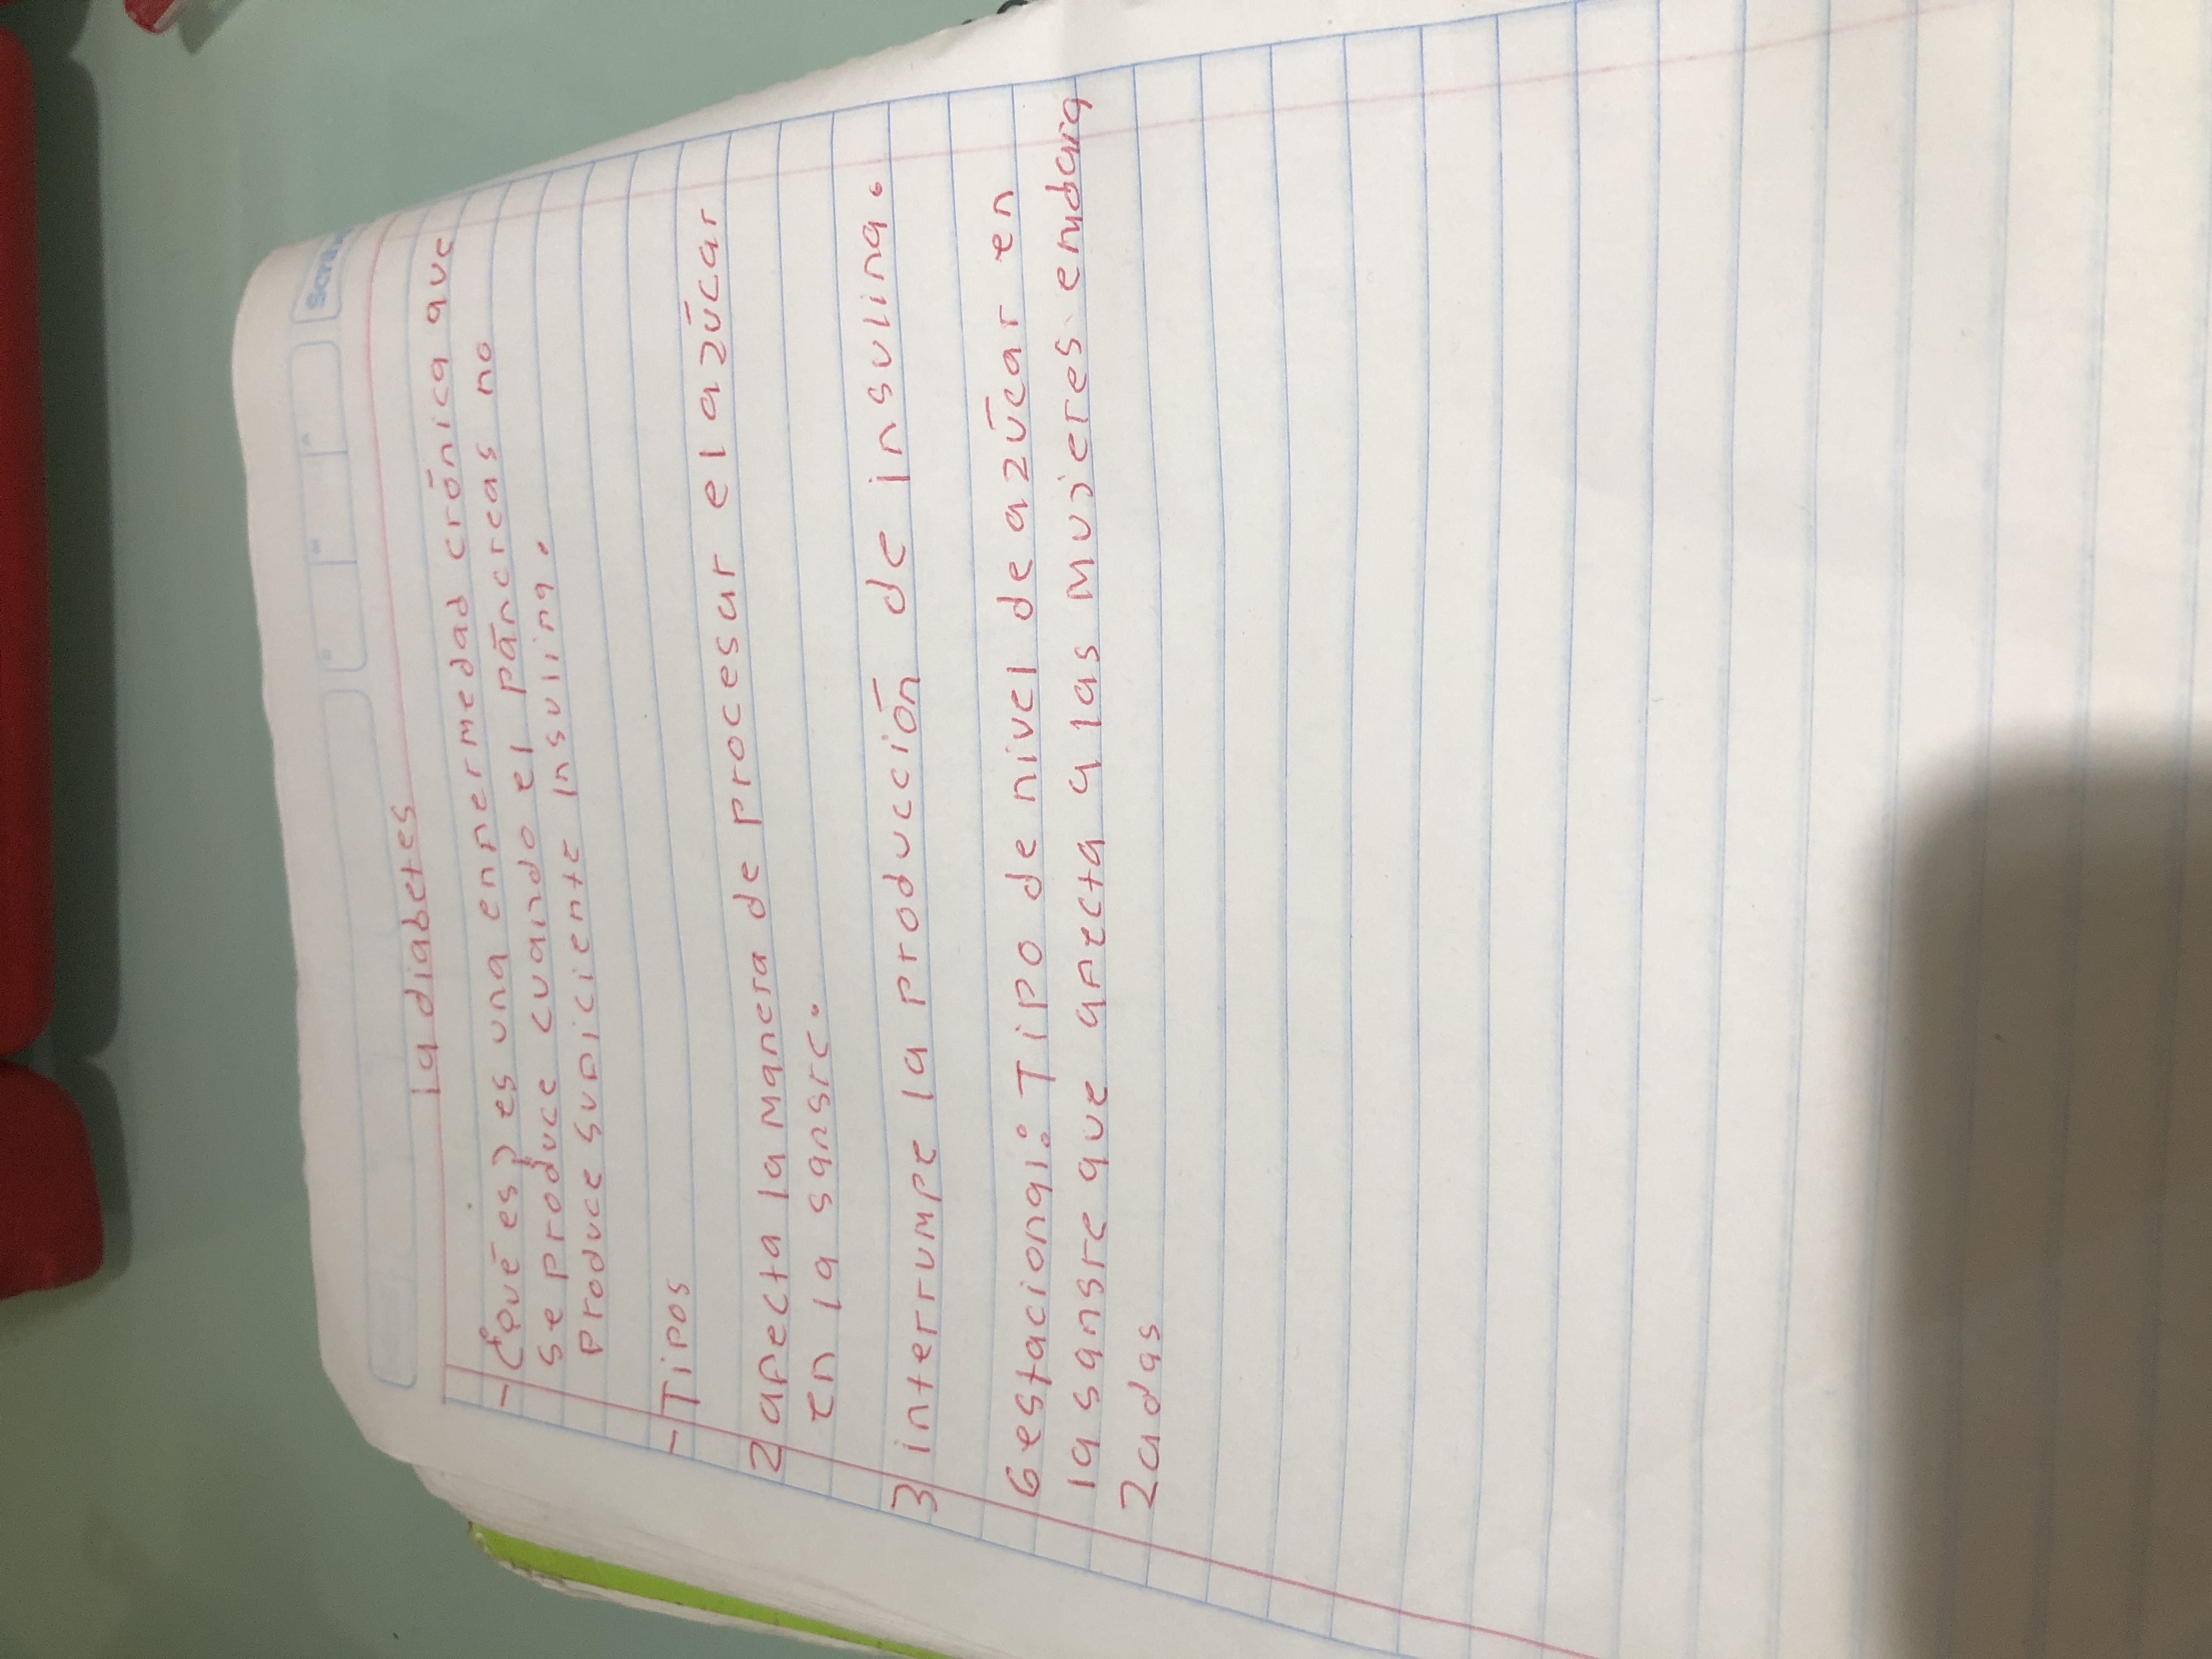 la diabetes
- ¿Qué es) es una enfermedad crónica que
se produce cuando el páncreas no
produce suficiente insulina.
- Tipos
2 afecta la manera de procesar el azúcar
en la sangre.
3 interrumpe la producción de insulina.
Gestacional: Tipo de nivel de azúcar en
la sangre que afecta a las mujeres embara
zadas